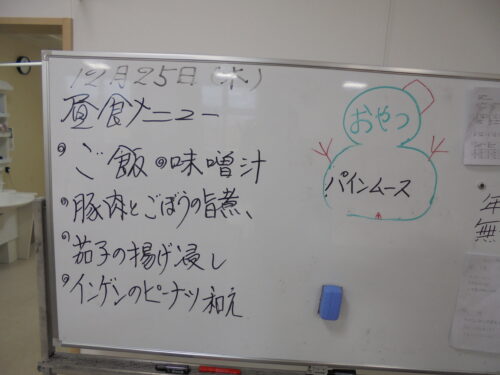 12月25日(木)
昼食メニュー
ご飯 味噌汁
豚肉とごぼうの旨煮、
茄子の揚げ浸し
インゲンのピーナツ和え
おやつ
パインムース
年
無